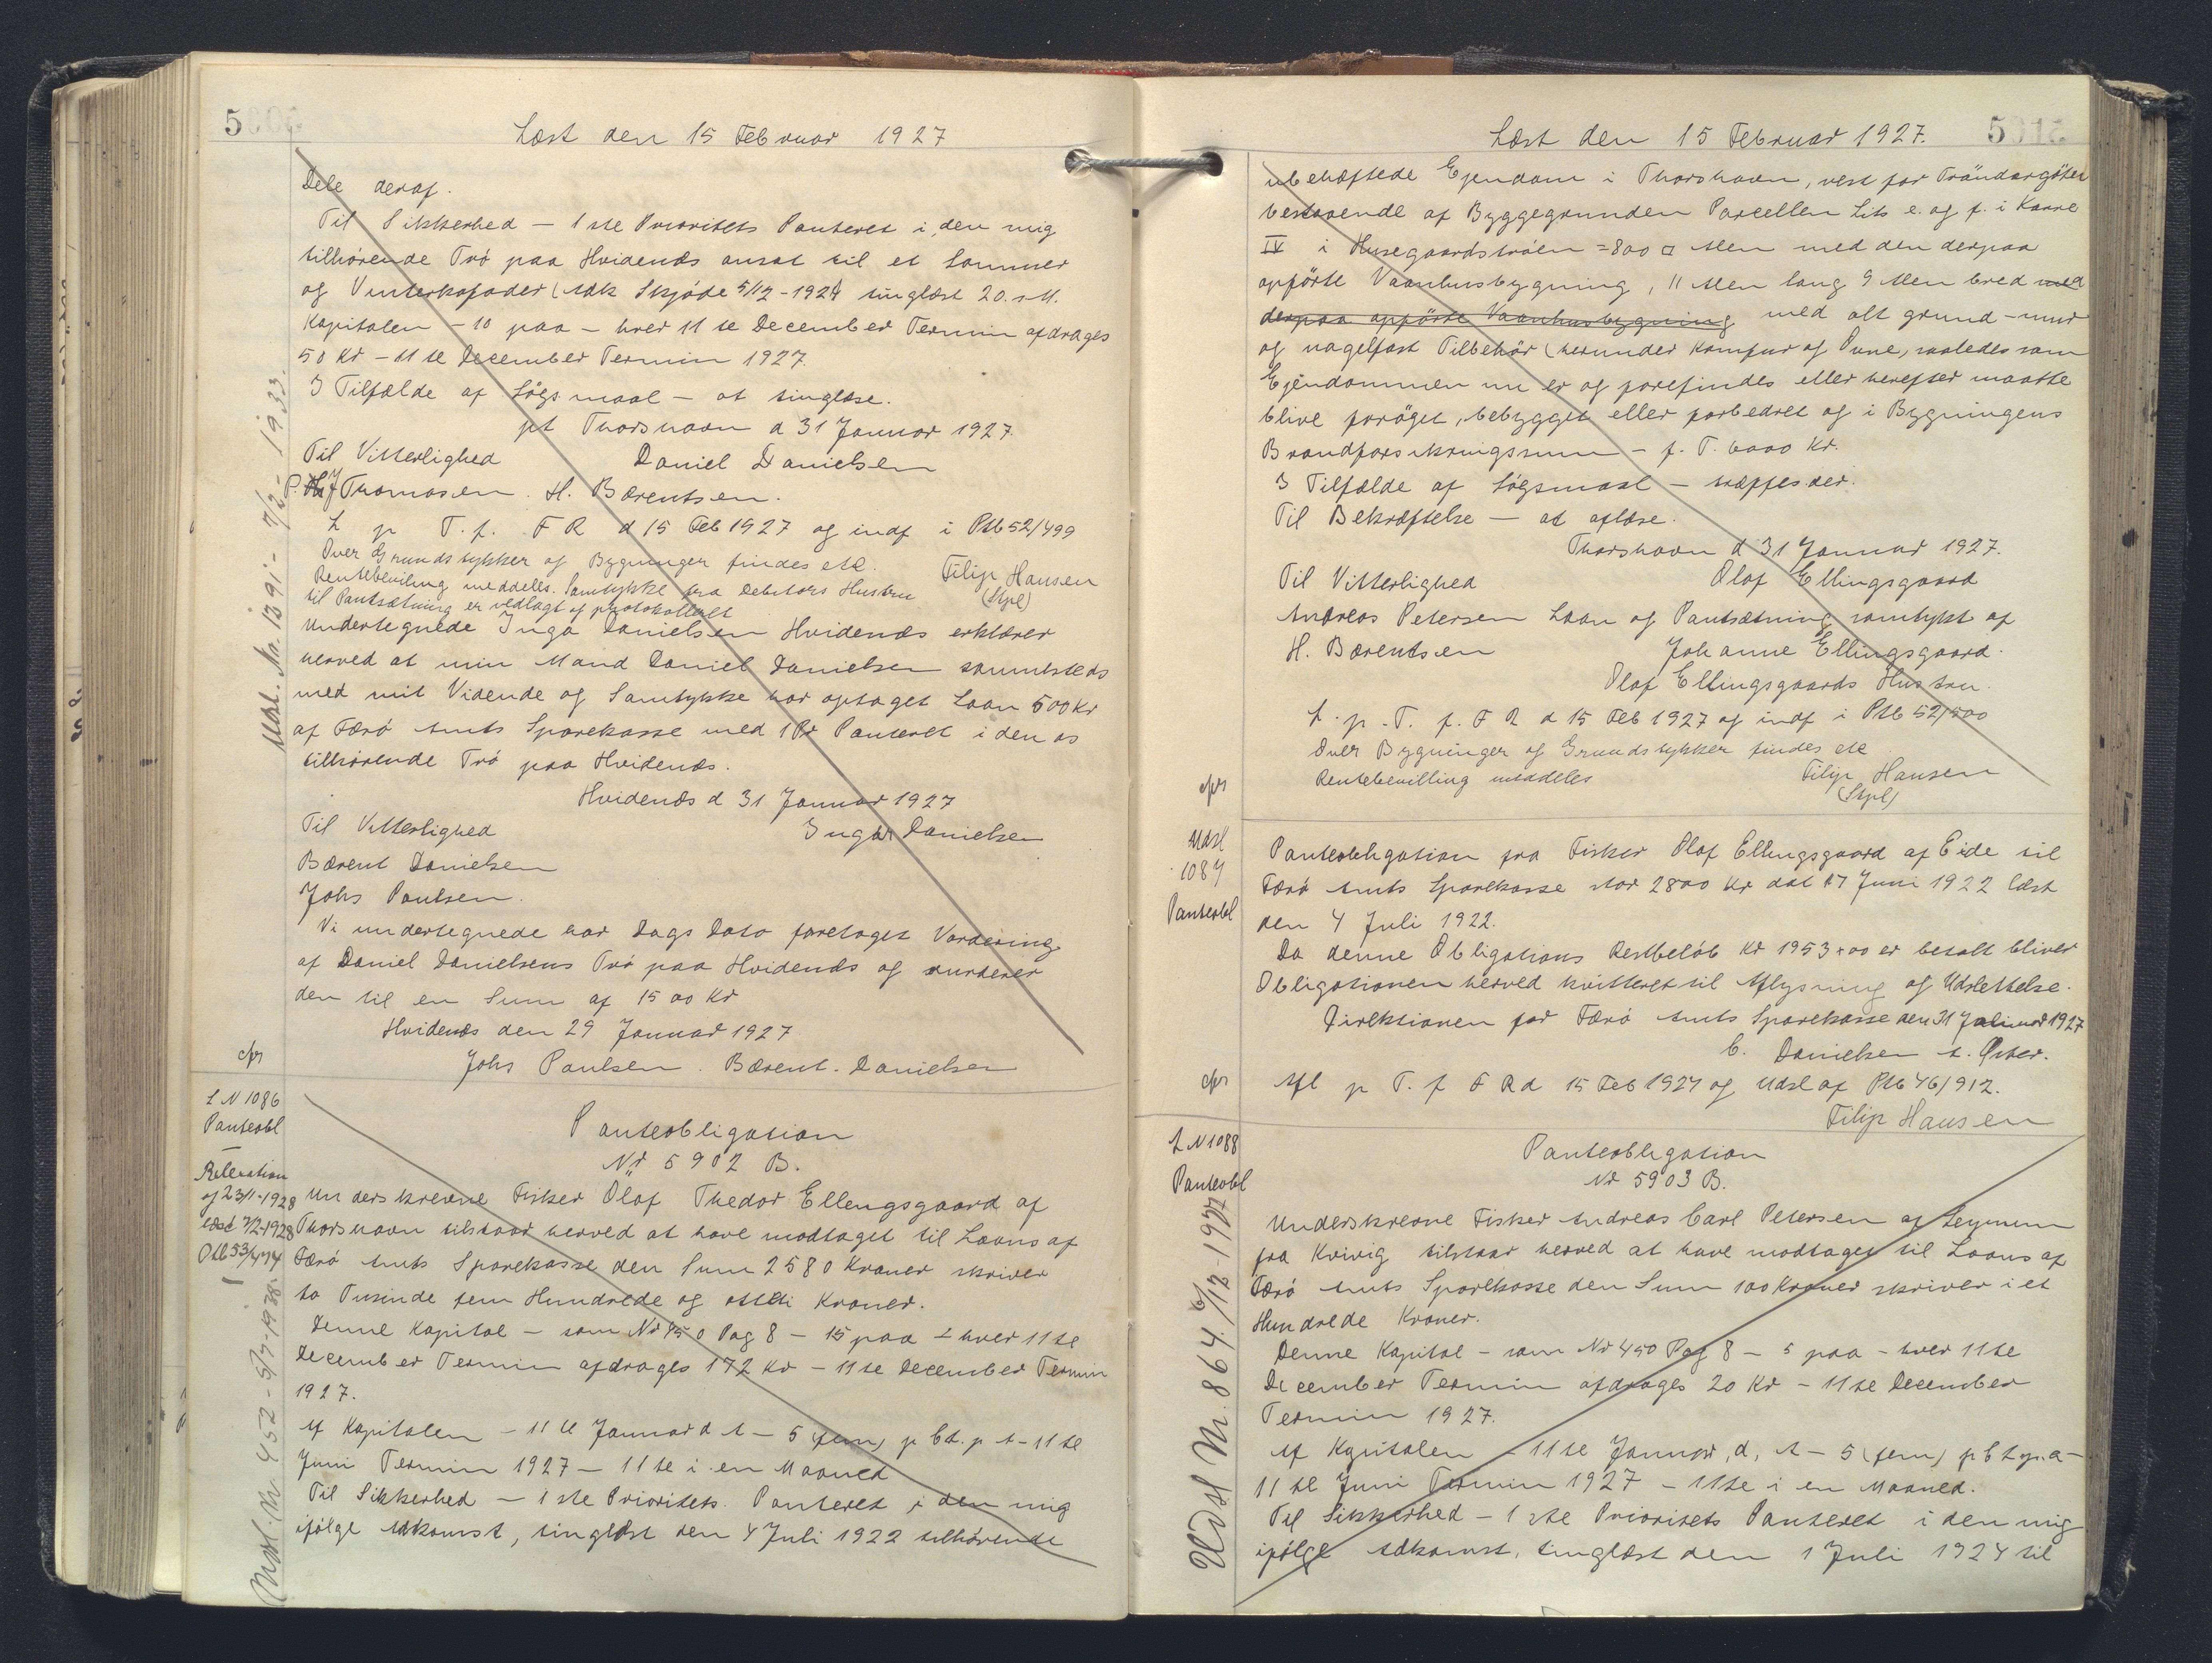 500
Læst den 15 Februar 1927
Dele deraf.
Til Sikkerhed — 1ste Prioritets Panteret i den mig
tilhørende Trö paa Hvidenæs ansat til et Sommer
og Vinterkofoder (Adk Skjöde 5/12-1924 tinglæst 20. s. M.
Kapitalen — 10 paa — hver 11te December Termin afdrages
50 Kr — 11te December Termin 1927.
I Tilfælde af Lögsmaal — at tinglæse.
pt Thorshavn d 31 Januar 1927.
Til Vitterlighed Daniel Danielsen
P. J Thomasen. H. Bærentsen.
L p T. f. F R d 15 Feb 1927 og indf i Ptb 52/499
Over Grundstykker og Bygninger findes etc. Filip Hansen
Rentebevilling meddeles. Samtykke fra Debitors Hustru (Stpl)
til Pantsætning er vedlagt og protokolleret
Undertegnede Inga Danielsen Hvidenæs erklærer
herved at min Mand Daniel Danielsen sammesteds
med mit Vidende og Samtykke har optaget Laan 500 Kr
af Færö Amts Sparekasse med 1 Pr Panteret i den os
tilhørende Trö paa Hvidenæs.
Hvidenæs d 31 Januar 1927
Til Vitterlighed Inga Danielsen
Bærent Danielsen
Johs Paulsen.
Vi undertegnede har Dags Dato foretaget Vurdering
af Daniel Danielsens Trö paa Hvidenæs og vurderer
den til en Sum af 1500 Kr
Hvidenæs den 29 Januar 1927
Johs Paulsen. Bærent. Danielsen
Udsl. Nr. 1291 - 7/2 - 1933.
cfr
L N 1086
Panteobl
Relaxation
af 23/1-1928
læst 7/2-1928
Ptb 53/474
Udsl. Nr 452 - 5/7-1938.
Panteobligation
Nr 5902 B.
Underskrevne Fisker Olaf Thedor Ellengsgaard af
Thorshavn tilstaar herved at have modtaget til Laans af
Færö Amts Sparekasse den Sum 2580 Kroner skriver
to Tusinde fem Hundrede og otteti Kroner.
Denne Kapital — som Nr 450 Pag 8 — 15 paa — hver 11te
December Termin afdrages 172 Kr — 11te December Termin
1927.
Af Kapitalen — 11te Januar d A — 5 (fem) p Ct. p A — 11te
Juni Termin 1927 — 11te i en Maaned
Til Sikkerhed — 1ste Prioritets Panteret i den mig
ifölge Adkomst, tinglæst den 4 Juli 1922 tilhørende
501
Læst den 15 Februar 1927.
ubehæftede Ejendom i Thorshavn, vest for Tröndargöten
bestaaende af Byggegrunden Parcellen Lits e. og f. i Karre
IV i Husegaardströen = 800 □ Alen med den derpaa
opförte Vaanhusbygning, 11 Alen lang 9 Alen bred med
derpaa opförte Vaanhusbygning med alt grund-mur
og nagelfast Tilbehör (herunder Komfur og Ovne, saaledes som
Ejendommen nu er og forefindes eller herefter maatte
blive foröget, bebygget eller forbedret og i Bygningens
Brandforsikringssum — f. T. 6000 Kr.
I Tilfælde af Lögsmaal — træffes der.
Til Bekræftelse — at aflæse.
Thorshavn d 31 Januar 1927.
Til Vitterlighed Olaf Ellingsgaard
Andreas Petersen Laan og Pantsætning samtykt af
H. Bærentsen Johanne Ellingsgaard.
Olaf Ellingsgaards Hustru.
L. p. T. f. F R d 15 Feb 1927 og indf i Ptb 52/500
Over Bygninger og Grundstykker findes etc
Rentebevilling meddeles Filip Hansen
(Stpl)
cfr
Udsl
1087
Panteobl
Panteobligation fra Fisker Olaf Ellingsgaard af Eide til
Færö Amts Sparekasse stor 2800 Kr dat 17 Juni 1922 læst
den 4 Juli 1922.
Da denne Obligations Restbelöb Kr 1953+00 er betalt bliver
Obligationen herved kvitteret til Aflysning og Udslettelse.
Direktionen for Færö Amts Sparekasse den 31 Januar 1927
C. Danielsen A. Öster.
cfr
Afl p T. f F R d 15 Feb 1927 og Udsl af Ptb 46/912.
Filip Hansen
L N 1088
Panteobl
Udsl Nr. 864. 6/12-1927
Panteobligation
Nr 5903 B.
Underskrevne Fisker Andreas Carl Petersen af Leynum
fra Kvivig tilstaar herved at have modtaget til Laans af
Færö Amts Sparekasse den Sum 100 Kroner skriver i et
Hundrede Kroner.
Denne Kapital — som Nr 450 Pag 8 — 5 paa — hver 11te
December Termin afdrages 20 Kr — 11te December
Termin 1927.
Af Kapitalen — 11te Januar, d, A — 5 (fem) p Ct p. a —
11te Juni Termin 1927 — 11te i en Maaned.
Til Sikkerhed — 1ste Prioritets Panteret i den mig
ifölge Adkomst, tinglæst den 1 Juli 1924 til